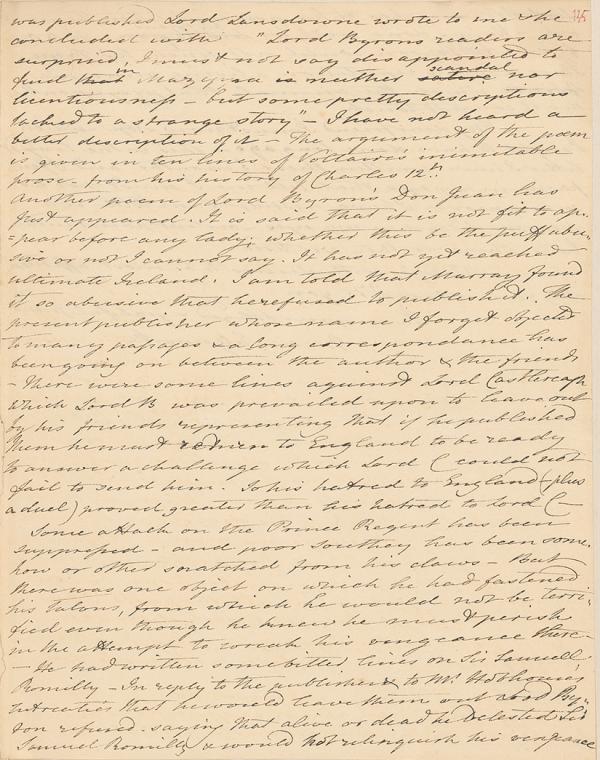 was published Lord Lansdowne wrote to me & he 125
concluded with "Lord Byrons readers are
surprised, I must not say disappointed to
find that in Mazeppa is neither satire scandal nor
licentiousness – but some pretty descriptions
tacked to a strange story" – I have not heard a
better description of it – The argument of the poem
is given in ten lines of Voltaire's inimitable
prose – from his history of Charles 12th.
Another poem of Lord Byron's Don Juan has
just appeared. It is said that it is not fit to ap-
=pear before any lady; whether this be the puff abu-
sive or not I cannot say. It has not yet reached
ultimate Ireland. I am told that Murray found
it so abusive that he refused to published it. The
present publisher whose name I forget objected
to many passages & a long correspondance has
been going on between the author & the friends
– There were some lines against Lord Castlereagh
which Lord B was prevailed upon to leave out
by his friends representing that if he published
them he must return to England to be ready
to answer a challenge which Lord C could not
fail to send him. So his hatred to England (plus
a duel) proved greater than his hatred to Lord C–
Some attack on the Prince Regent has been
suppressed – and poor Southey has been some
how or other snatched from his claws – But
there was one object on which he had fastened
his talons, from which he would not be terri-
fied even though he knew he must perish
in the attempt to wreak his vengeance there–
– He had written some bitter lines on Sir Samuel
Romilly – In reply to the publisher & to Mr Hobhouses
intreaties that he would leave them out Lord By-
ron refused saying that alive or dead he detested Sir
Samuel Romilly & would not relinquish his vengeance